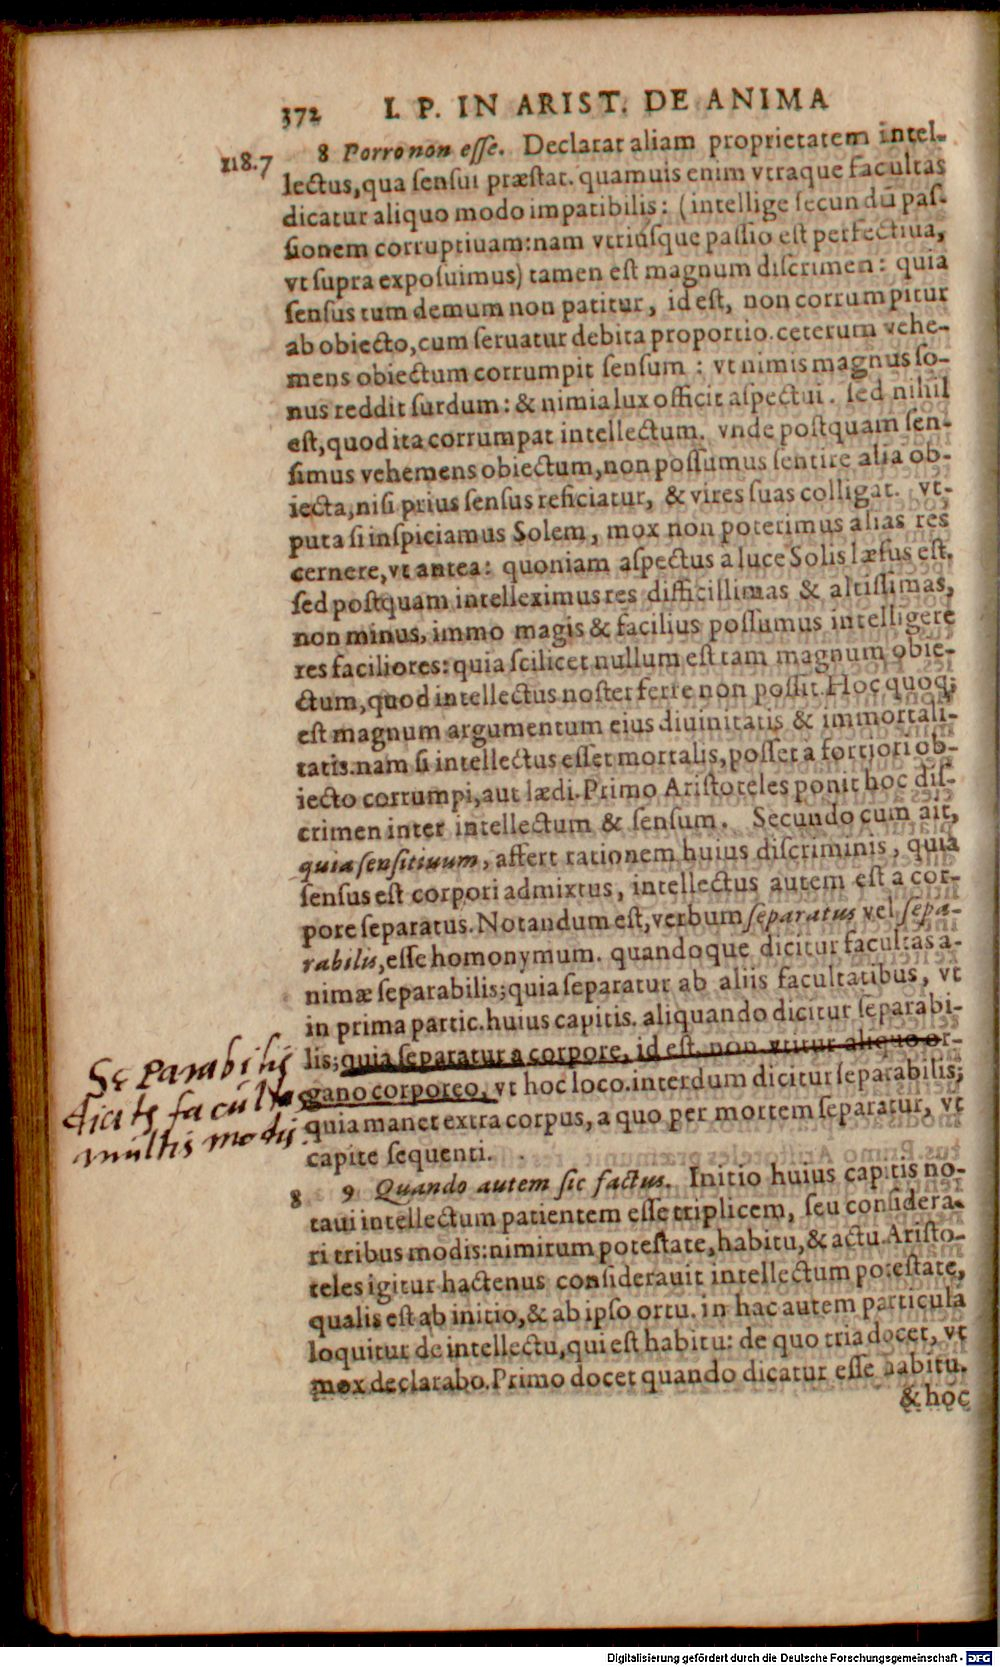 372 I. P. IN ARIST. DE ANIMA
118.7 8 Porro non esse. Declarat aliam proprietatem intel-
lectus, qua sensui præstat. quamuis enim vtraque facultas
dicatur aliquo modo impatibilis: (intellige secundū pas-
sionem corruptiuam: nam vtriusque passio est perfectiua,
vt supra exposuimus) tamen est magnum discrimen: quia
sensus tum demum non patitur, id est, non corrumpitur
ab obiecto, cum seruatur debita proportio. ceterum vehe-
mens obiectum corrumpit sensum: vt nimis magnus so-
nus reddit surdum: & nimia lux officit aspectui. sed nihil
est, quod ita corrumpat intellectum. vnde postquam sen-
simus vehemens obiectum, non possumus sentire alia ob-
iecta, nisi prius sensus reficiatur, & vires suas colligat. vt-
puta si inspiciamus Solem, mox non poterimus alias res
cernere, vt antea: quoniam aspectus a luce Solis læsus est.
sed postquam intelleximus res difficillimas & altissimas,
non minus, immo magis & facilius possumus intelligere
res faciliores: quia scilicet nullum est tam magnum obie-
ctum, quod intellectus noster ferre non possit. Hoc quoq;
est magnum argumentum eius diuinitatis & immortali-
tatis. nam si intellectus esset mortalis, posset a fortiori ob-
iecto corrumpi, aut lædi. Primo Aristoteles ponit hoc dis-
crimen inter intellectum & sensum. Secundo cum ait,
quia sensitiuum, affert rationem huius discriminis, quia
sensus est corpori admixtus, intellectus autem est a cor-
pore separatus. Notandum est, verbum separatus vel sepa-
rabilis, esse homonymum. quandoque dicitur facultas a-
nimæ separabilis; quia separatur ab aliis facultatibus, vt
in prima partic. huius capitis. aliquando dicitur separabi-
lis; quia separatur a corpore, id est, non vtitur aliquo or-
gano corporeo, vt hoc loco. interdum dicitur separabilis;
quia manet extra corpus, a quo per mortem separatur, vt
capite sequenti.
Separabilis
dicitr facultas
multis modis
8 9 Quando autem sic factus. Initio huius capitis no-
taui intellectum patientem esse triplicem, seu considera-
ri tribus modis: nimirum potestate, habitu, & actu. Aristo-
teles igitur hactenus considerauit intellectum potestate,
qualis est ab initio, & ab ipso ortu. in hac autem particula
loquitur de intellectu, qui est habitu: de quo tria docet, vt
mox declarabo. Primo docet quando dicatur esse habitu.
& hoc
Digitalisierung gefördert durch die Deutsche Forschungsgemeinschaft - DFG